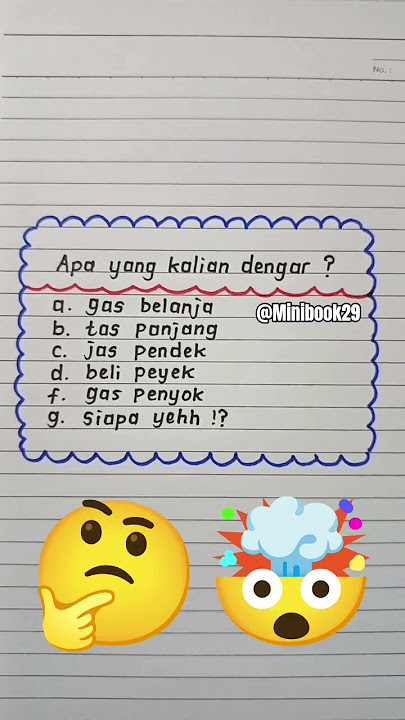 No. :
Apa yang kalian dengar ?
a. gas belanja
@Minibook29
b. tas panjang
c. jas pendek
d. beli peyek
f. gas penyok
g. siapa yehh !?